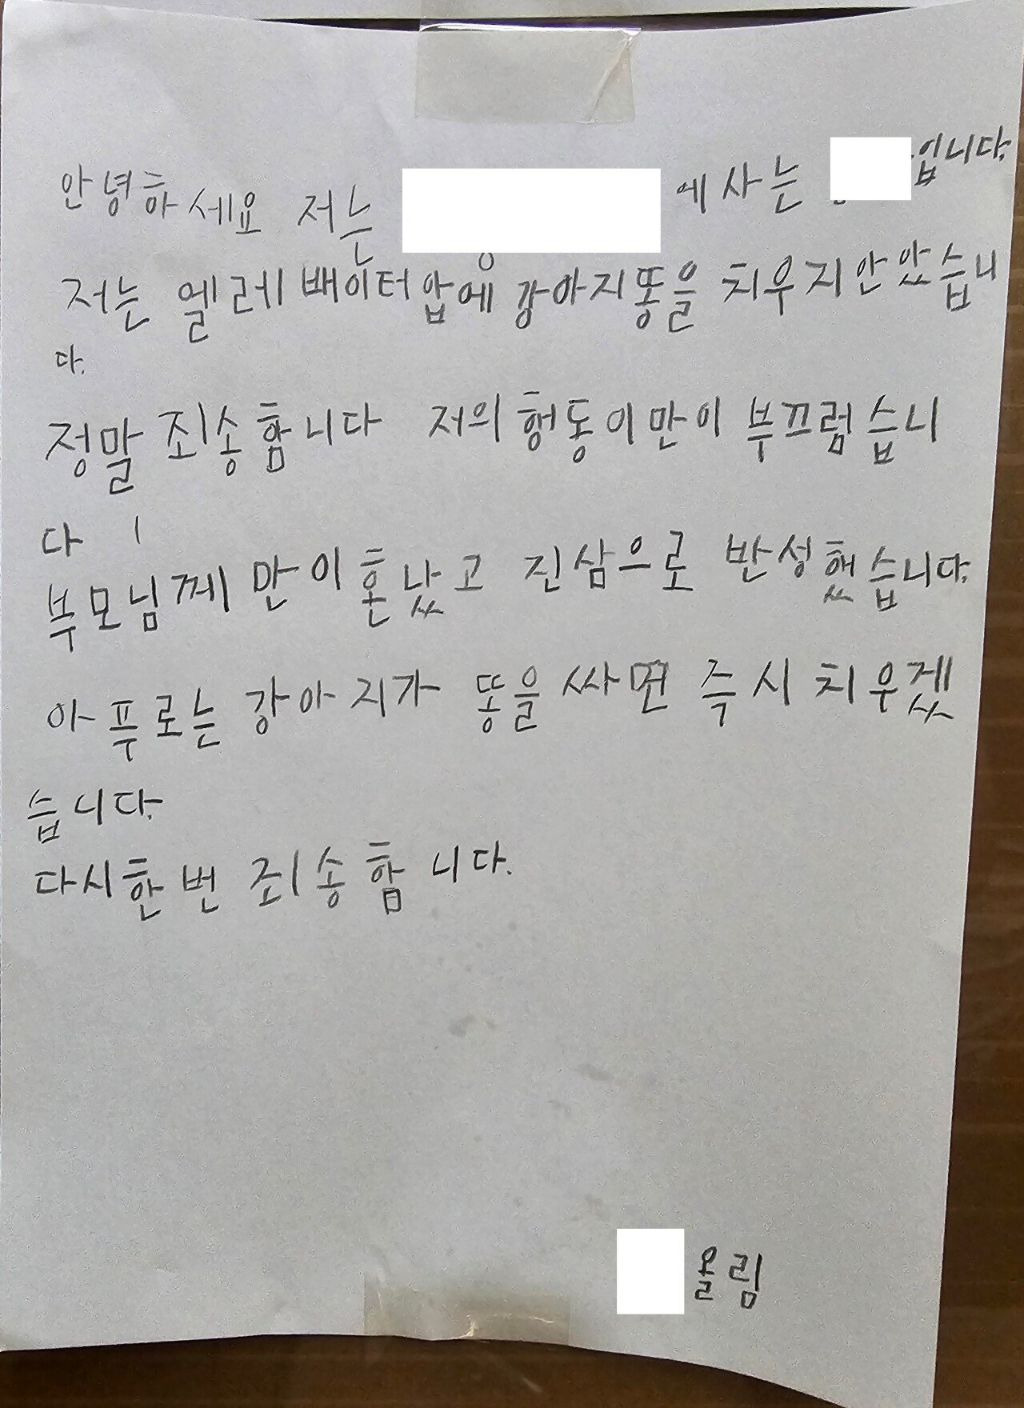 안녕하세요 저는 에사는 입니다.
저는 엘레배이터압에 강아지똥을 치우지안았습니
다.
정말 죄송합니다 저의 행동이만이 부끄럽습니
다
부모님께 만이혼났고 진삼으로 반성했습니다.
아푸로는 강아지가 똥을 싸면 즉시 치우겠
습니다.
다시한번 죄송합니다.
올림